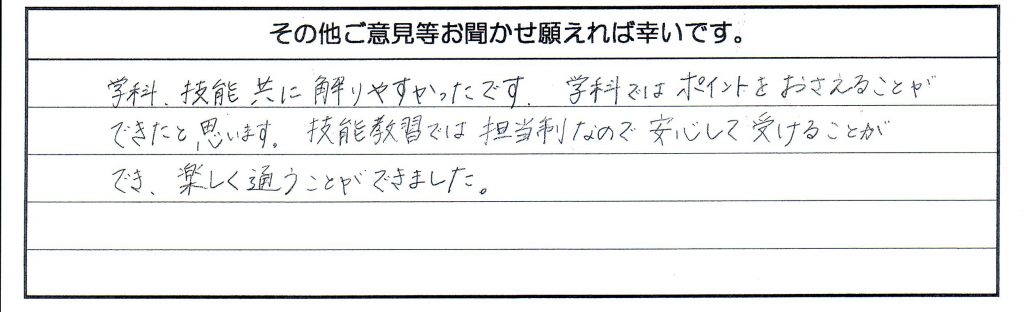 その他ご意見等お聞かせ願えれば幸いです。
学科、技能 共に 解りやすかったです。 学科では ポイントを おさえることが
できたと思います。 技能教習では 担当制なので 安心して 受けることが
でき、楽しく通うことができました。